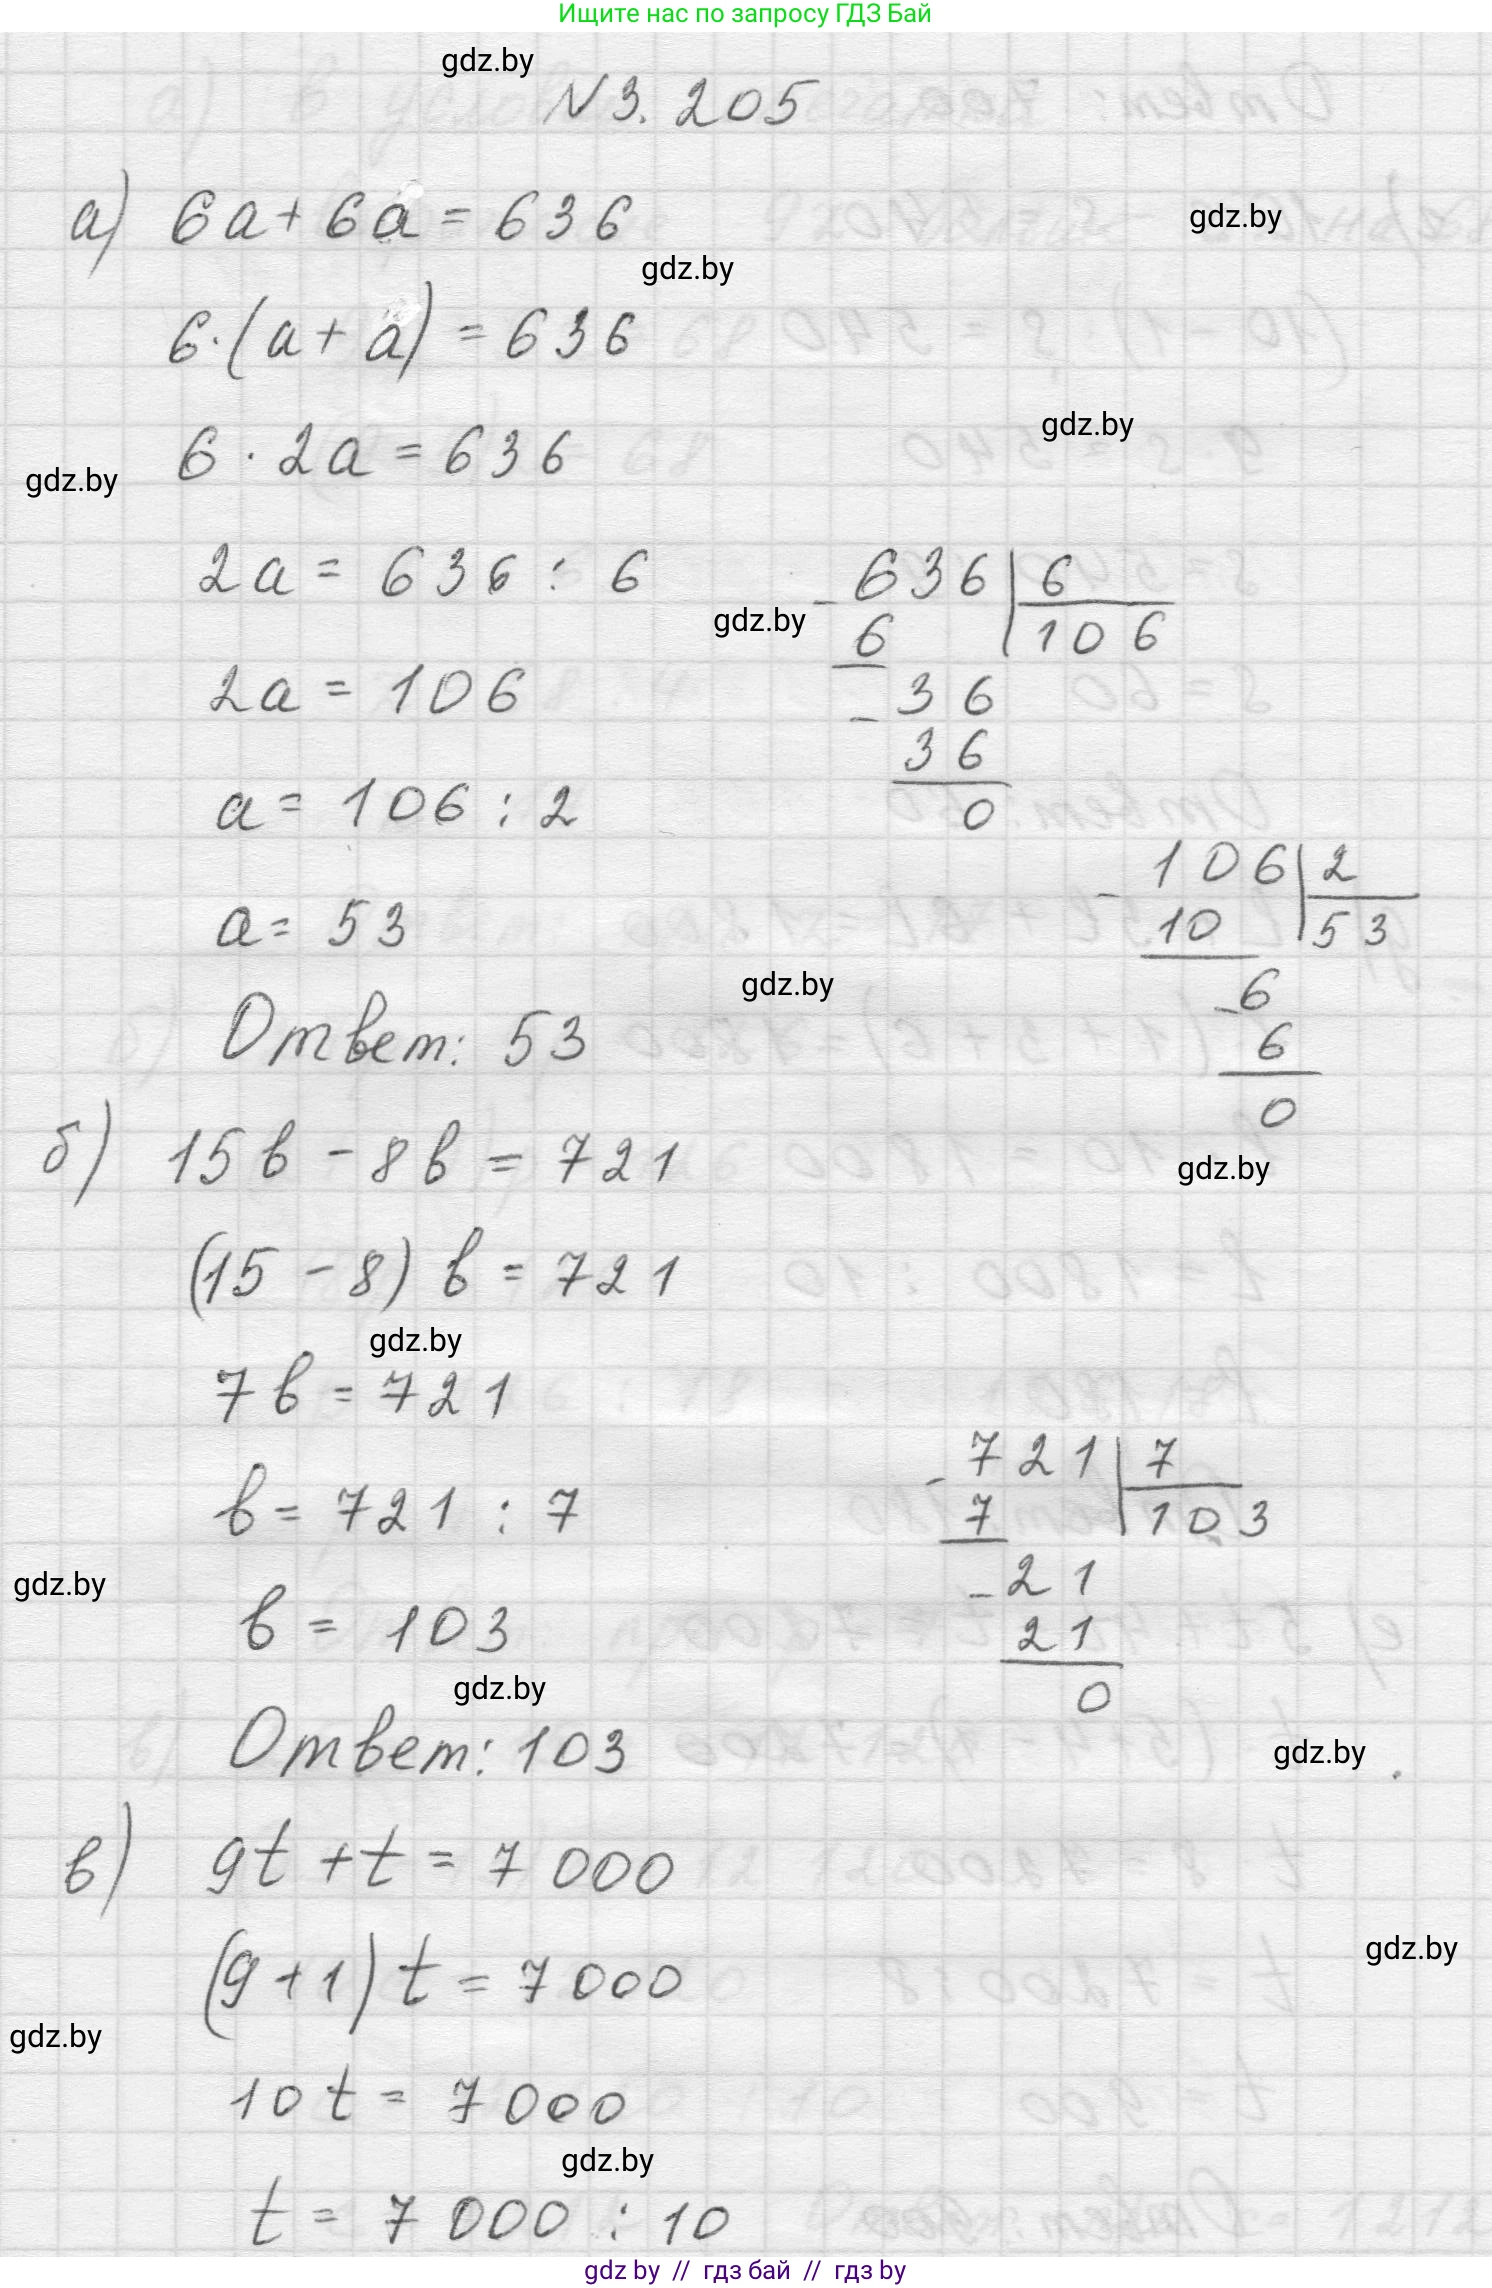 Ищите нас по запросу ГДЗ Бай
gdz.by
N 3. 205
а) 6a + 6a = 636
gdz.by
gdz.by
6·(a + a) = 636
gdz.by
6 · 2a = 636
gdz.by
2a = 636 : 6
636 | 6
gdz.by
- 6 106
2a = 106
- 36
36
0
a = 106 : 2
- 106 | 2
10 53
a = 53
gdz.by
- 6
6
0
Ответ: 53
б) 15b - 8b = 721
gdz.by
(15 - 8) b = 721
gdz.by
7b = 721
- 721 | 7
7 103
b = 721 : 7
gdz.by
- 21
21
0
b = 103
gdz.by
Ответ: 103
gdz.by
в) 9t + t = 7 000
gdz.by
(9 + 1) t = 7 000
gdz.by
10 t = 7 000
gdz.by
t = 7 000 : 10
gdz by // гдз бай // гдз by